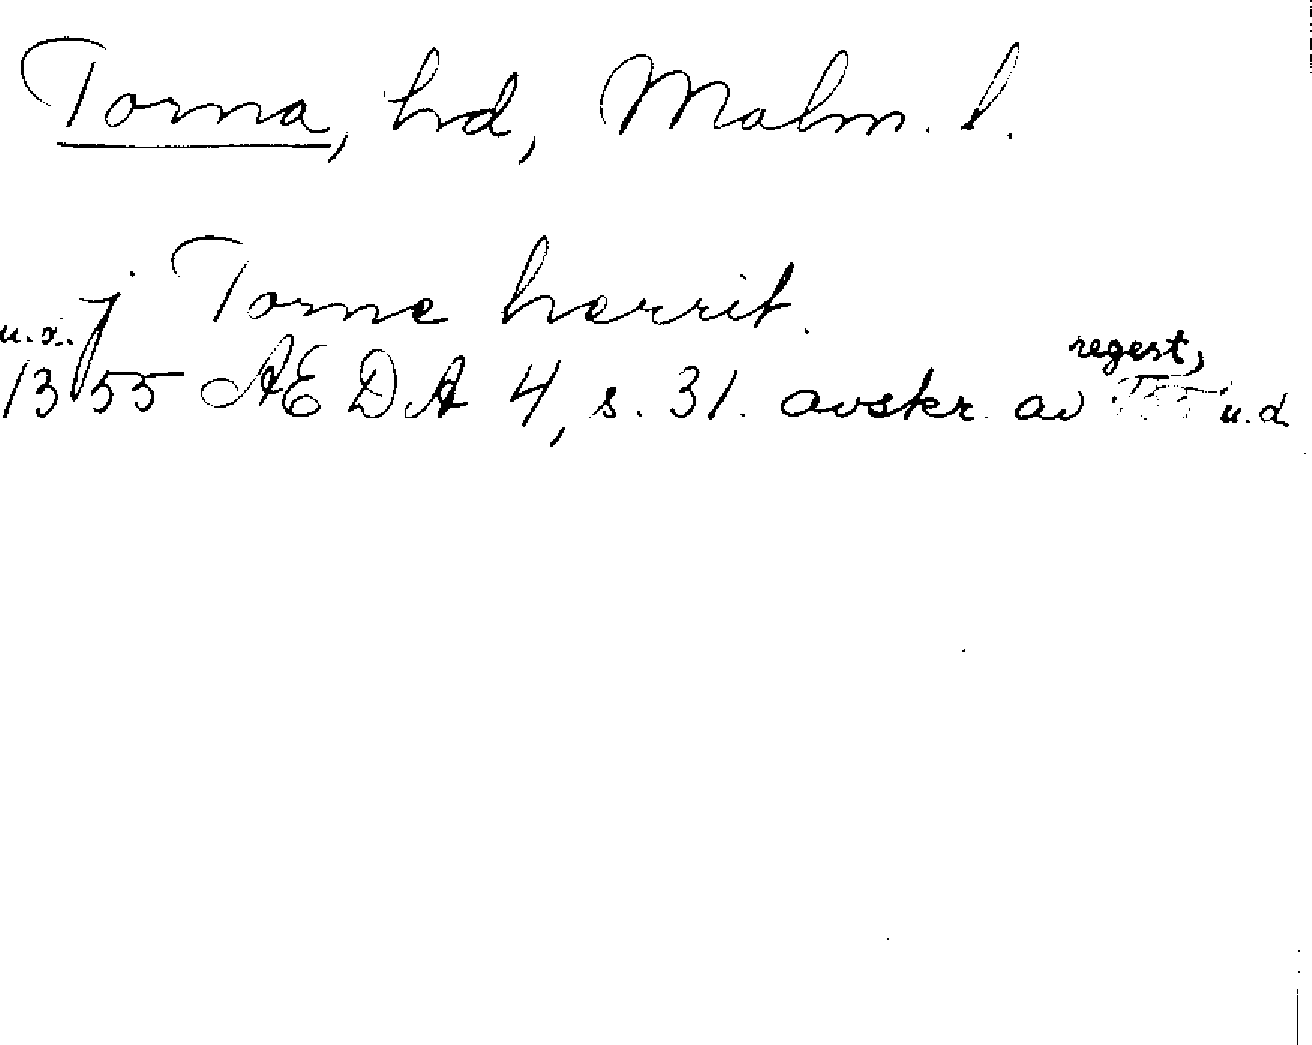 Torna, hd, Malm. l.
j Torne herrit.
u. d.
regest,
1355 AEDA 4, s. 31. avskr. av u. d.